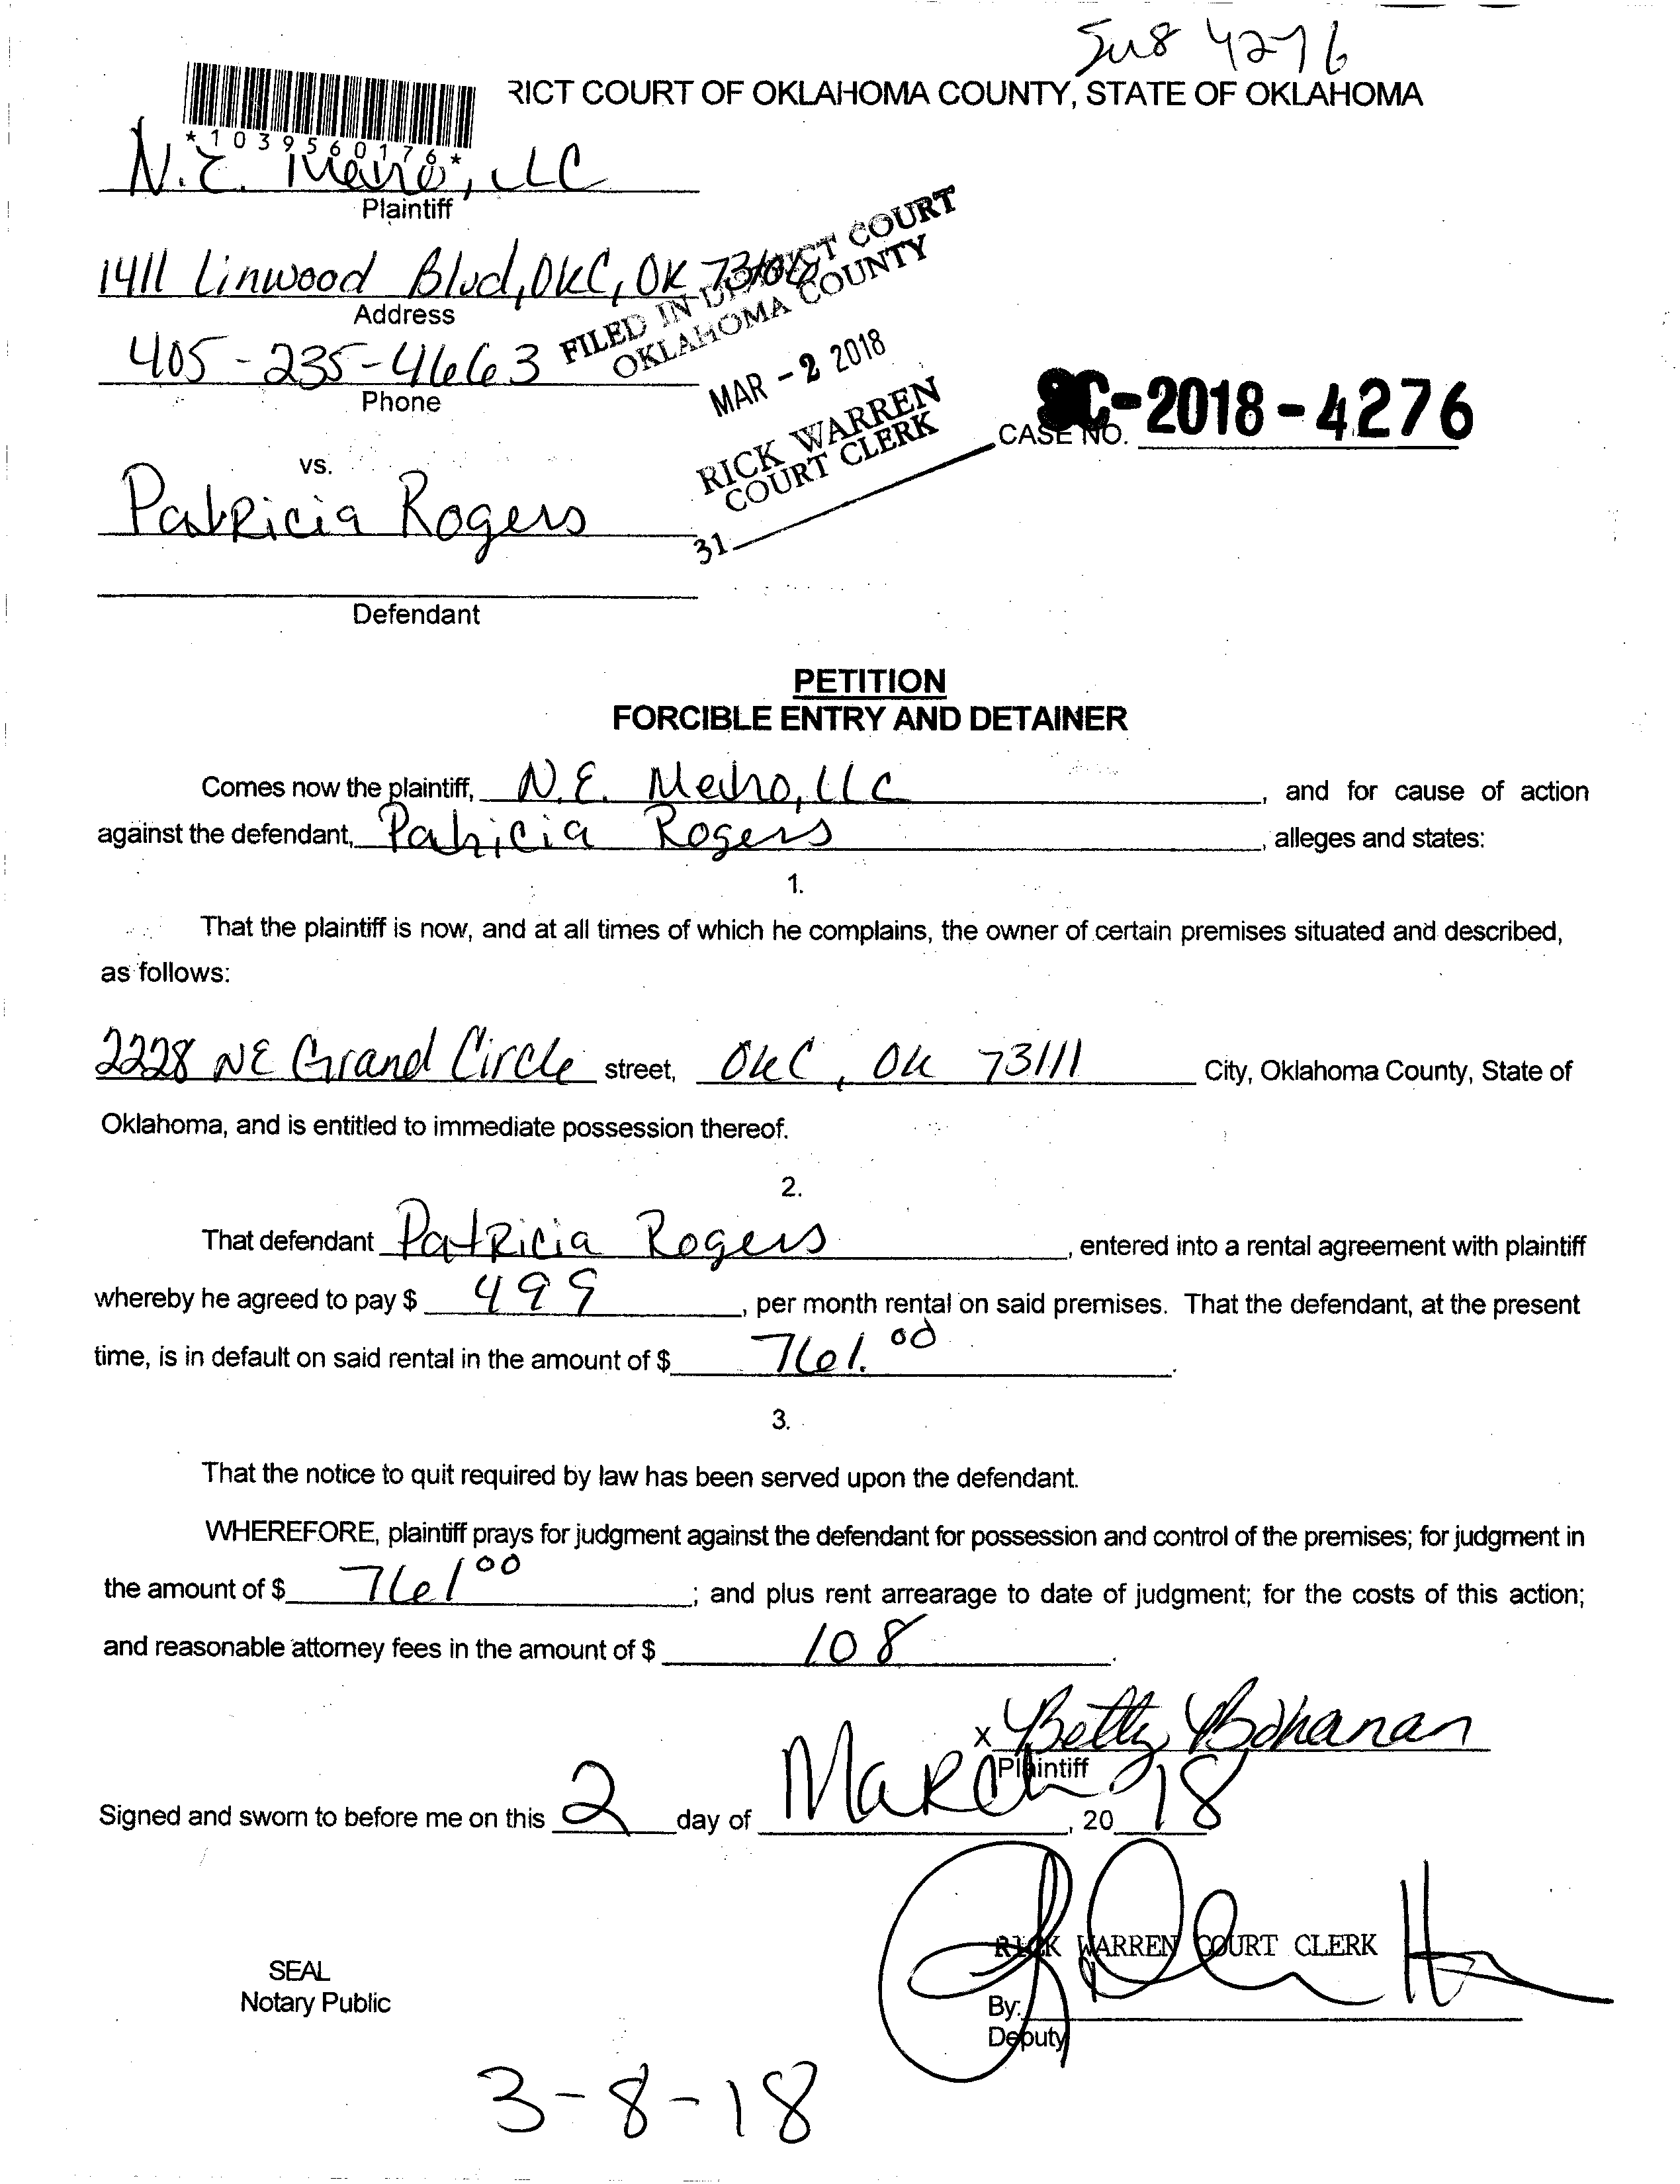 4276
RICT COURT OF OKLAHOMA COUNTY, STATE OF OKLAHOMA
*1039560176*
N.E. Metro, LLC
Plaintiff
1411 Linwood Blvd, OKC, OK
Address
405-235-4663
Phone
FILED IN DISTRICT COURT
OKLAHOMA COUNTY
MAR - 2 2018
RICK WARREN
COURT CLERK
31
SC-2018-4276
CASE NO.
vs.
Patricia Rogers
Defendant
PETITION
FORCIBLE ENTRY AND DETAINER
Comes now the plaintiff, N.E. Metro, LLC, and for cause of action
against the defendant, Patricia Rogers, alleges and states:
1.
That the plaintiff is now, and at all times of which he complains, the owner of certain premises situated and described,
as follows:
2228 NE Grand Circle street, OKC, OK 73111 City, Oklahoma County, State of
Oklahoma, and is entitled to immediate possession thereof.
2.
That defendant Patricia Rogers, entered into a rental agreement with plaintiff
whereby he agreed to pay $ 499, per month rental on said premises. That the defendant, at the present
time, is in default on said rental in the amount of $ 761.00.
3.
That the notice to quit required by law has been served upon the defendant.
WHEREFORE, plaintiff prays for judgment against the defendant for possession and control of the premises; for judgment in
the amount of $ 761 00; and plus rent arrearage to date of judgment; for the costs of this action;
and reasonable attorney fees in the amount of $ 108.
x Betty Bohanan
Plaintiff
Signed and sworn to before me on this 2 day of March, 2018
RICK WARREN COURT CLERK
SEAL
Notary Public
By:
Deputy
3-8-18